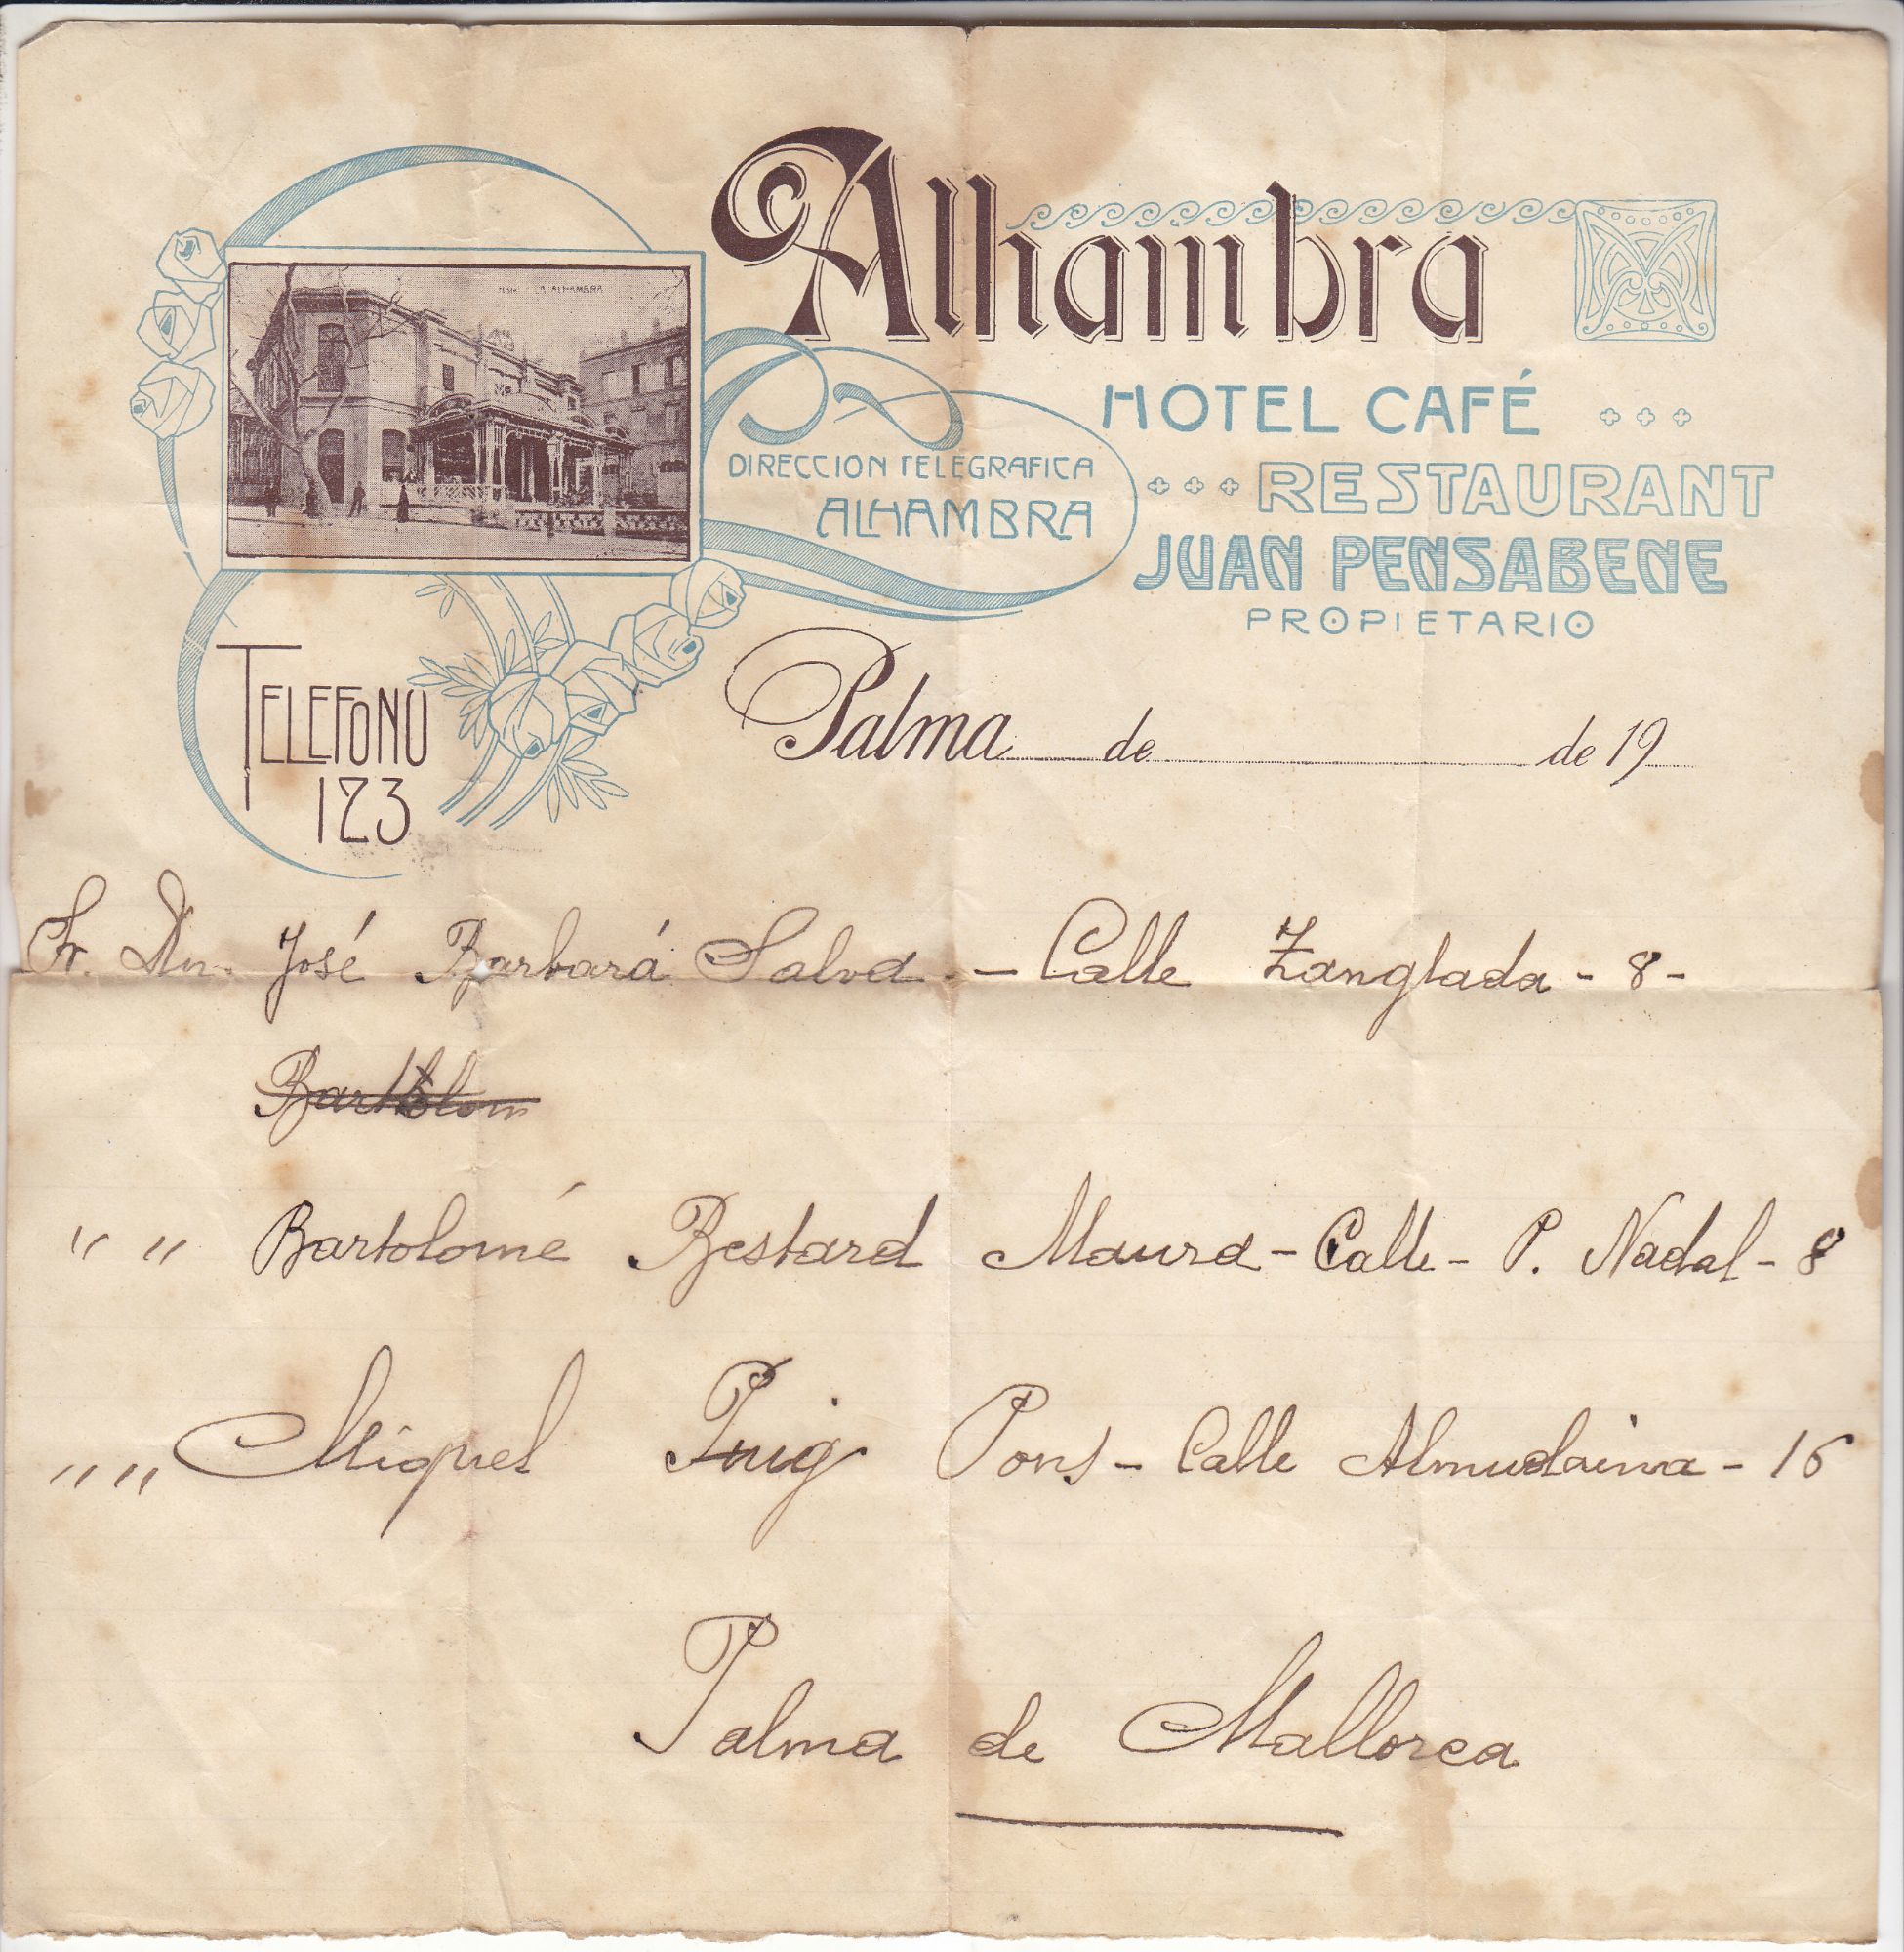 Alhambra
HOTEL CAFÉ
RESTAURANT
JUAN PENSABENE
PROPIETARIO
DIRECCION TELEGRAFICA
ALHAMBRA
LA ALHAMBRA
TELEFONO
123
Palma de de 19
Sr. Dn. José Barbará Salva - Calle Zanglada - 8 -
Bartolom
" " Bartolomé Bestard Maura - Calle - P. Nadal - 8
" " Miquel Puig Pons - Calle Almudaina - 16
Palma de Mallorca